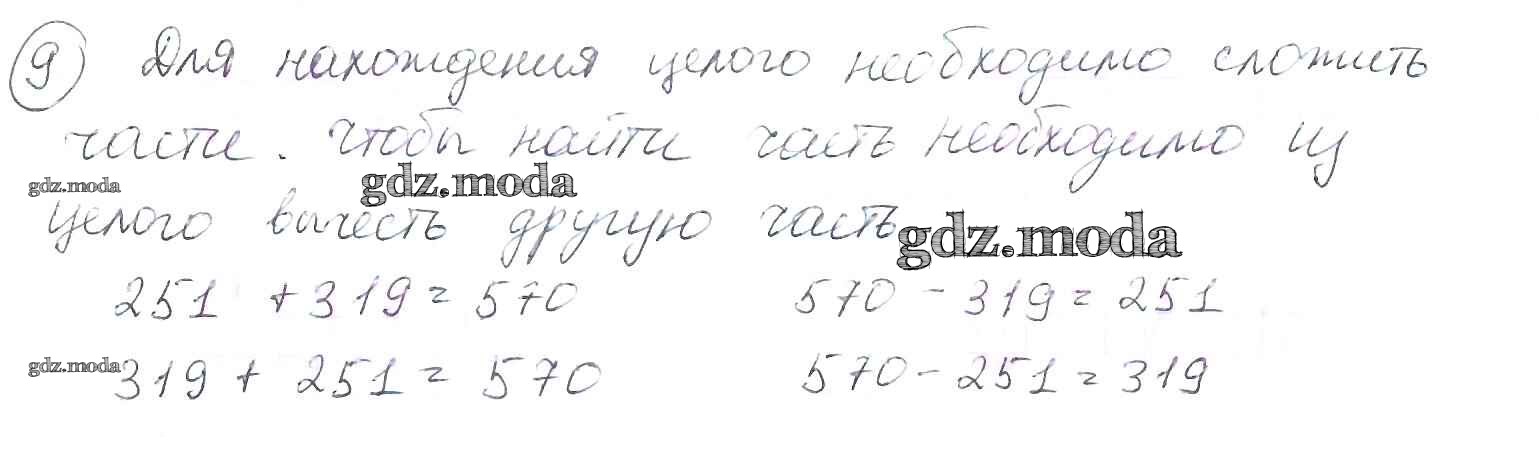 9 Для нахождения целого необходимо сложить
части. Чтобы найти часть необходимо из
gdz.moda gdz.moda
целого вычесть другую часть
gdz.moda
251 + 319 = 570 570 - 319 = 251
gdz.moda
319 + 251 = 570 570 - 251 = 319